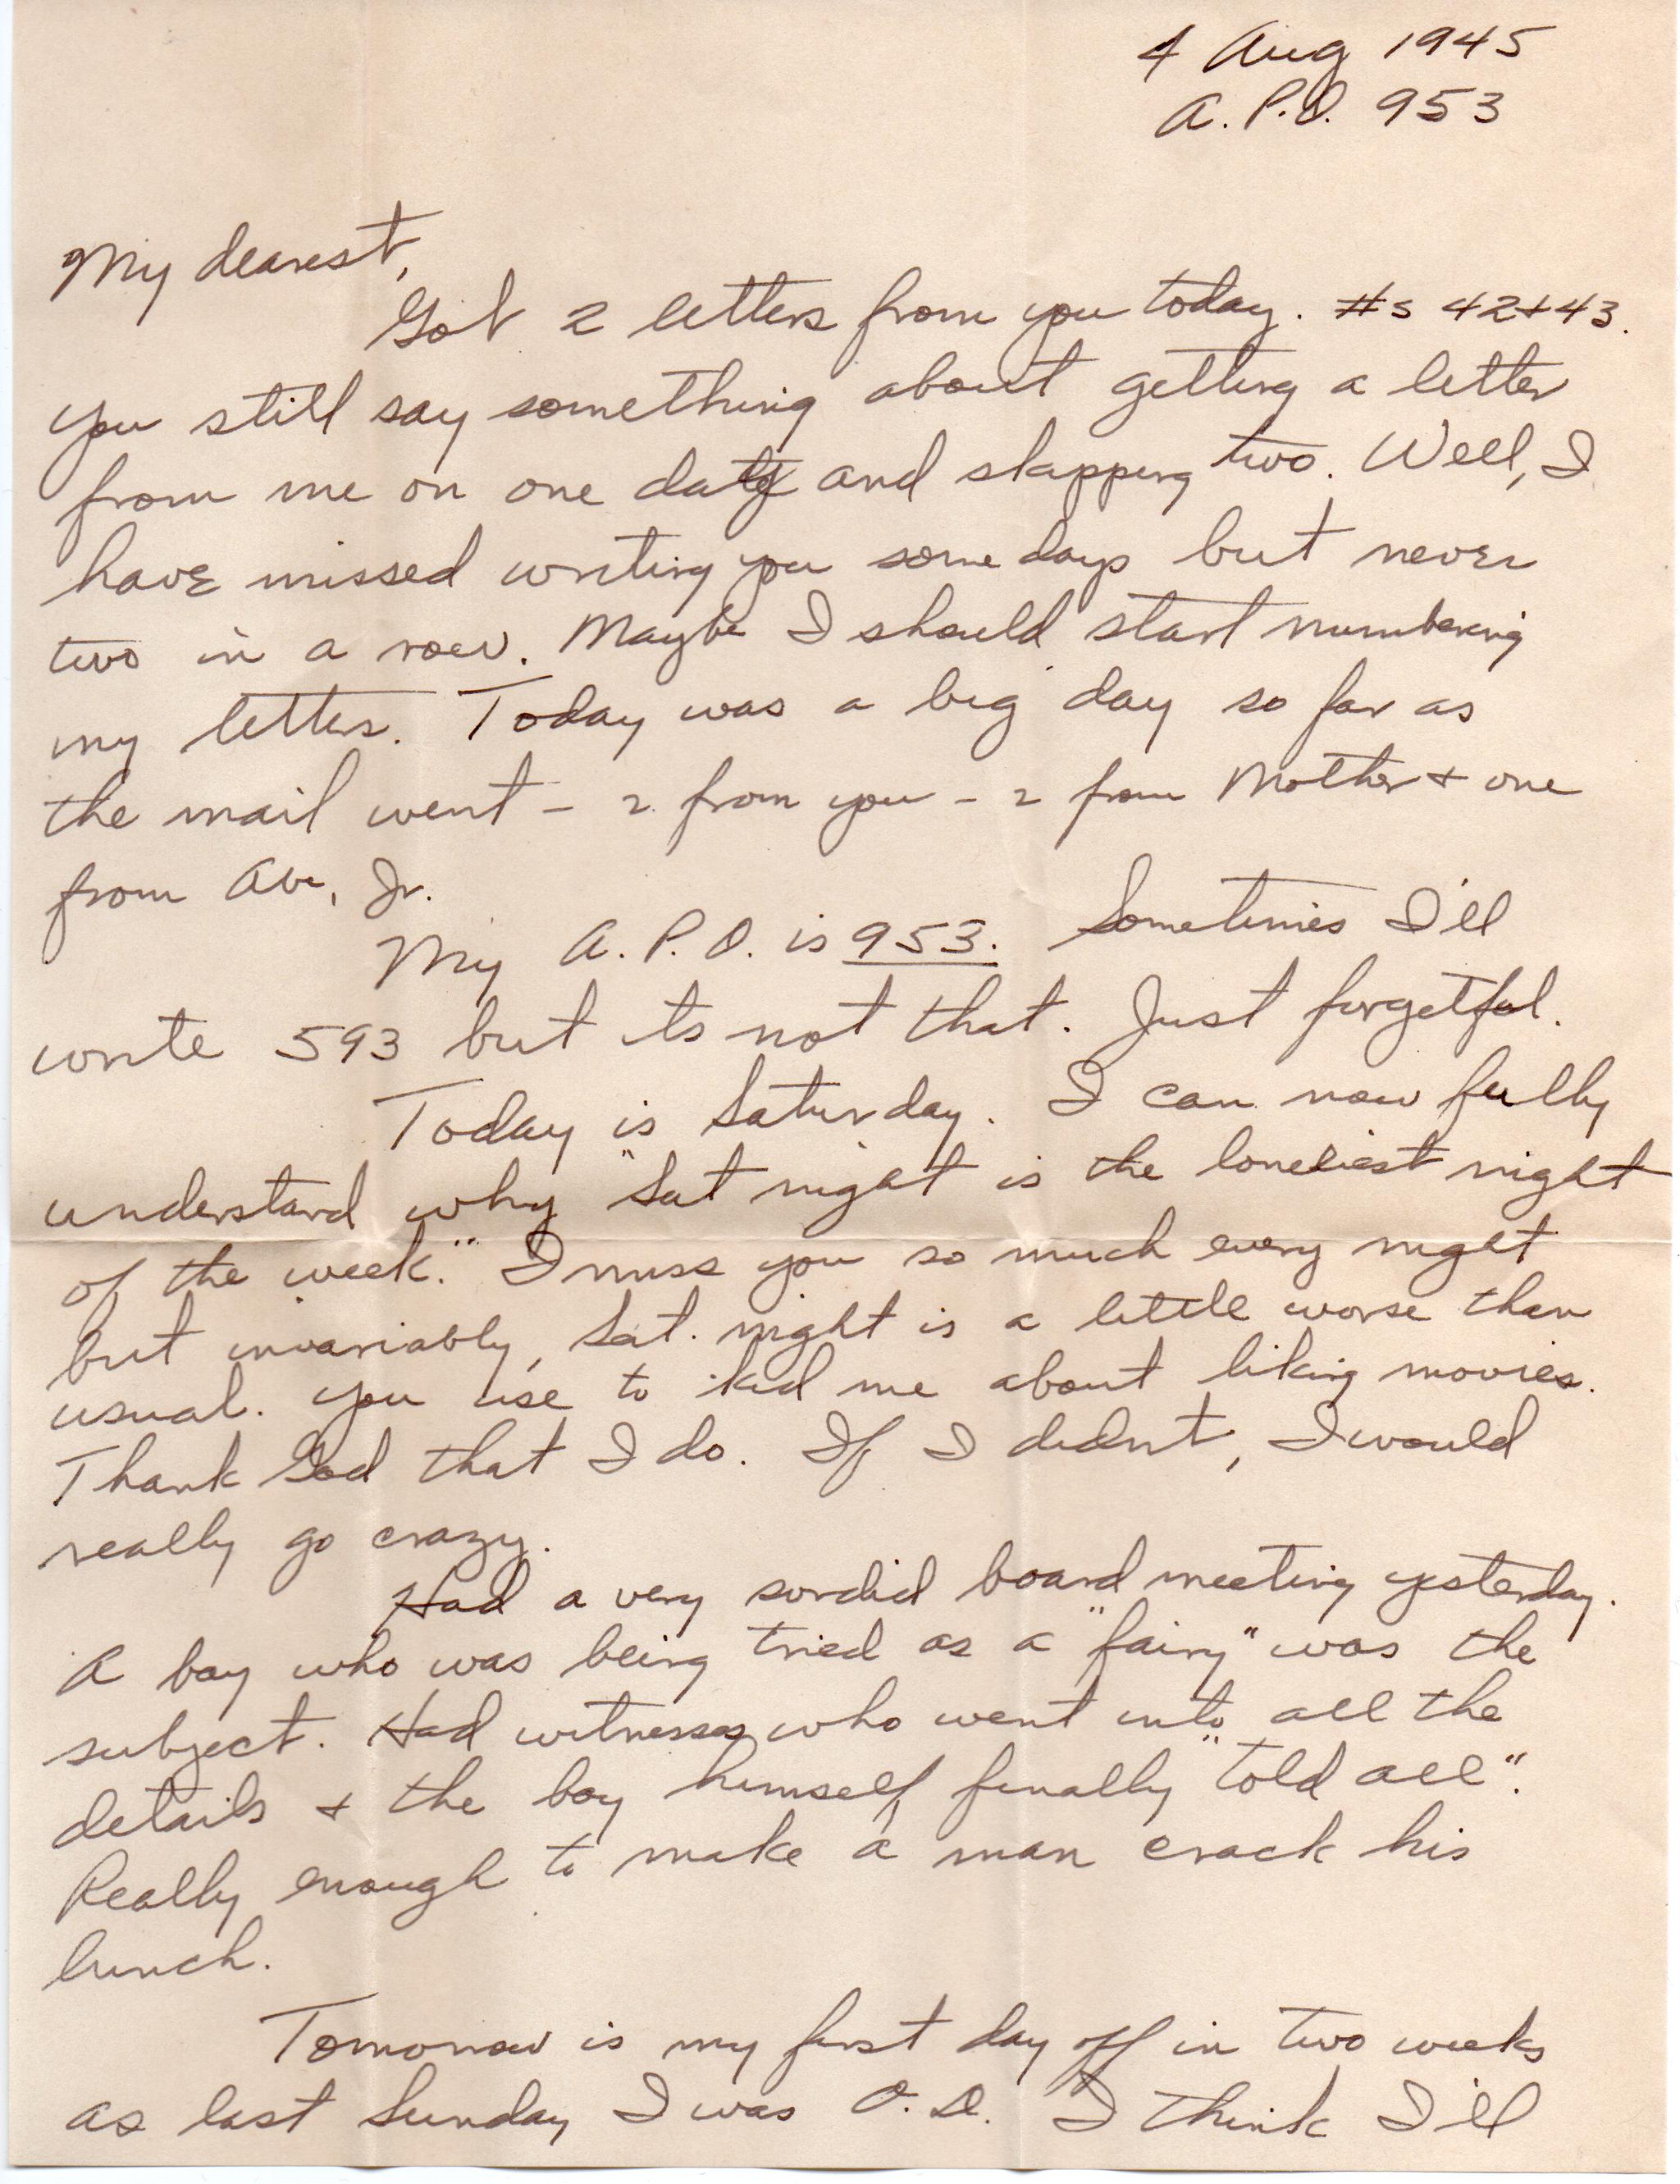 4 Aug 1945
A.P.O. 953
My dearest,
Got 2 letters from you today. #s 42+43.
you still say something about getting a letter
from me on one date and skipping two. Well, I
have missed writing you some days but never
two in a row. Maybe I should start numbering
my letters. Today was a big day so far as
the mail went - 2 from you - 2 from Mother + one
from Abe, Jr.
My A.P.O. is 953. Sometimes I'll
write 593 but its not that. Just forgetful.
Today is Saturday. I can now fully
understand why "Sat night is the loneliest night
of the week." I miss you so much every night
but invariably, Sat. night is a little worse than
usual. You use to kid me about liking movies.
Thank God that I do. If I didn't, I would
really go crazy.
Had a very sordid board meeting yesterday.
A boy who was being tried as a "fairy" was the
subject. Had witnesses who went into all the
details + the boy himself, finally "told all".
Really enough to make a man crack his
lunch.
Tomorrow is my first day off in two weeks
as last Sunday I was O.D. I think I'll